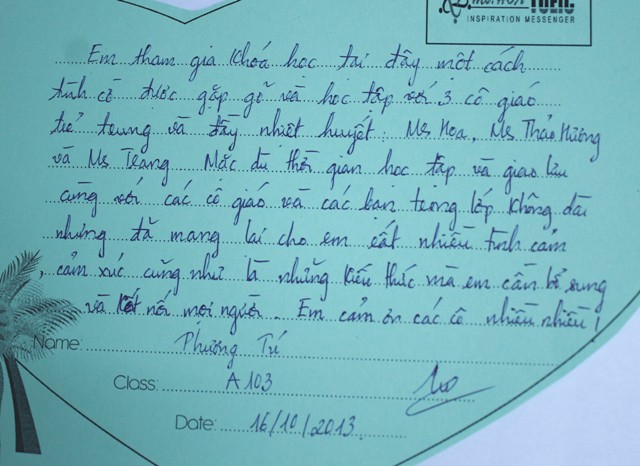 TOEIC
INSPIRATION MESSENGER
Em tham gia khoá học tại đây một cách
tình cờ được gặp gỡ và học tập với 3 cô giáo
trẻ trung và đầy nhiệt huyết: Ms Hoa, Ms Thảo Hương
và Ms Trang Mặc dù thời gian học tập và giao lưu
cùng với các cô giáo và các bạn trong lớp không dài
nhưng đã mang lại cho em rất nhiều tình cảm
, cảm xúc cũng như là những kiến thức mà em cần bổ sung
và kết nối mọi người. Em cảm ơn các cô nhiều nhiều!
Name: Phương Trí
Class: A103
Date: 16/10/2013